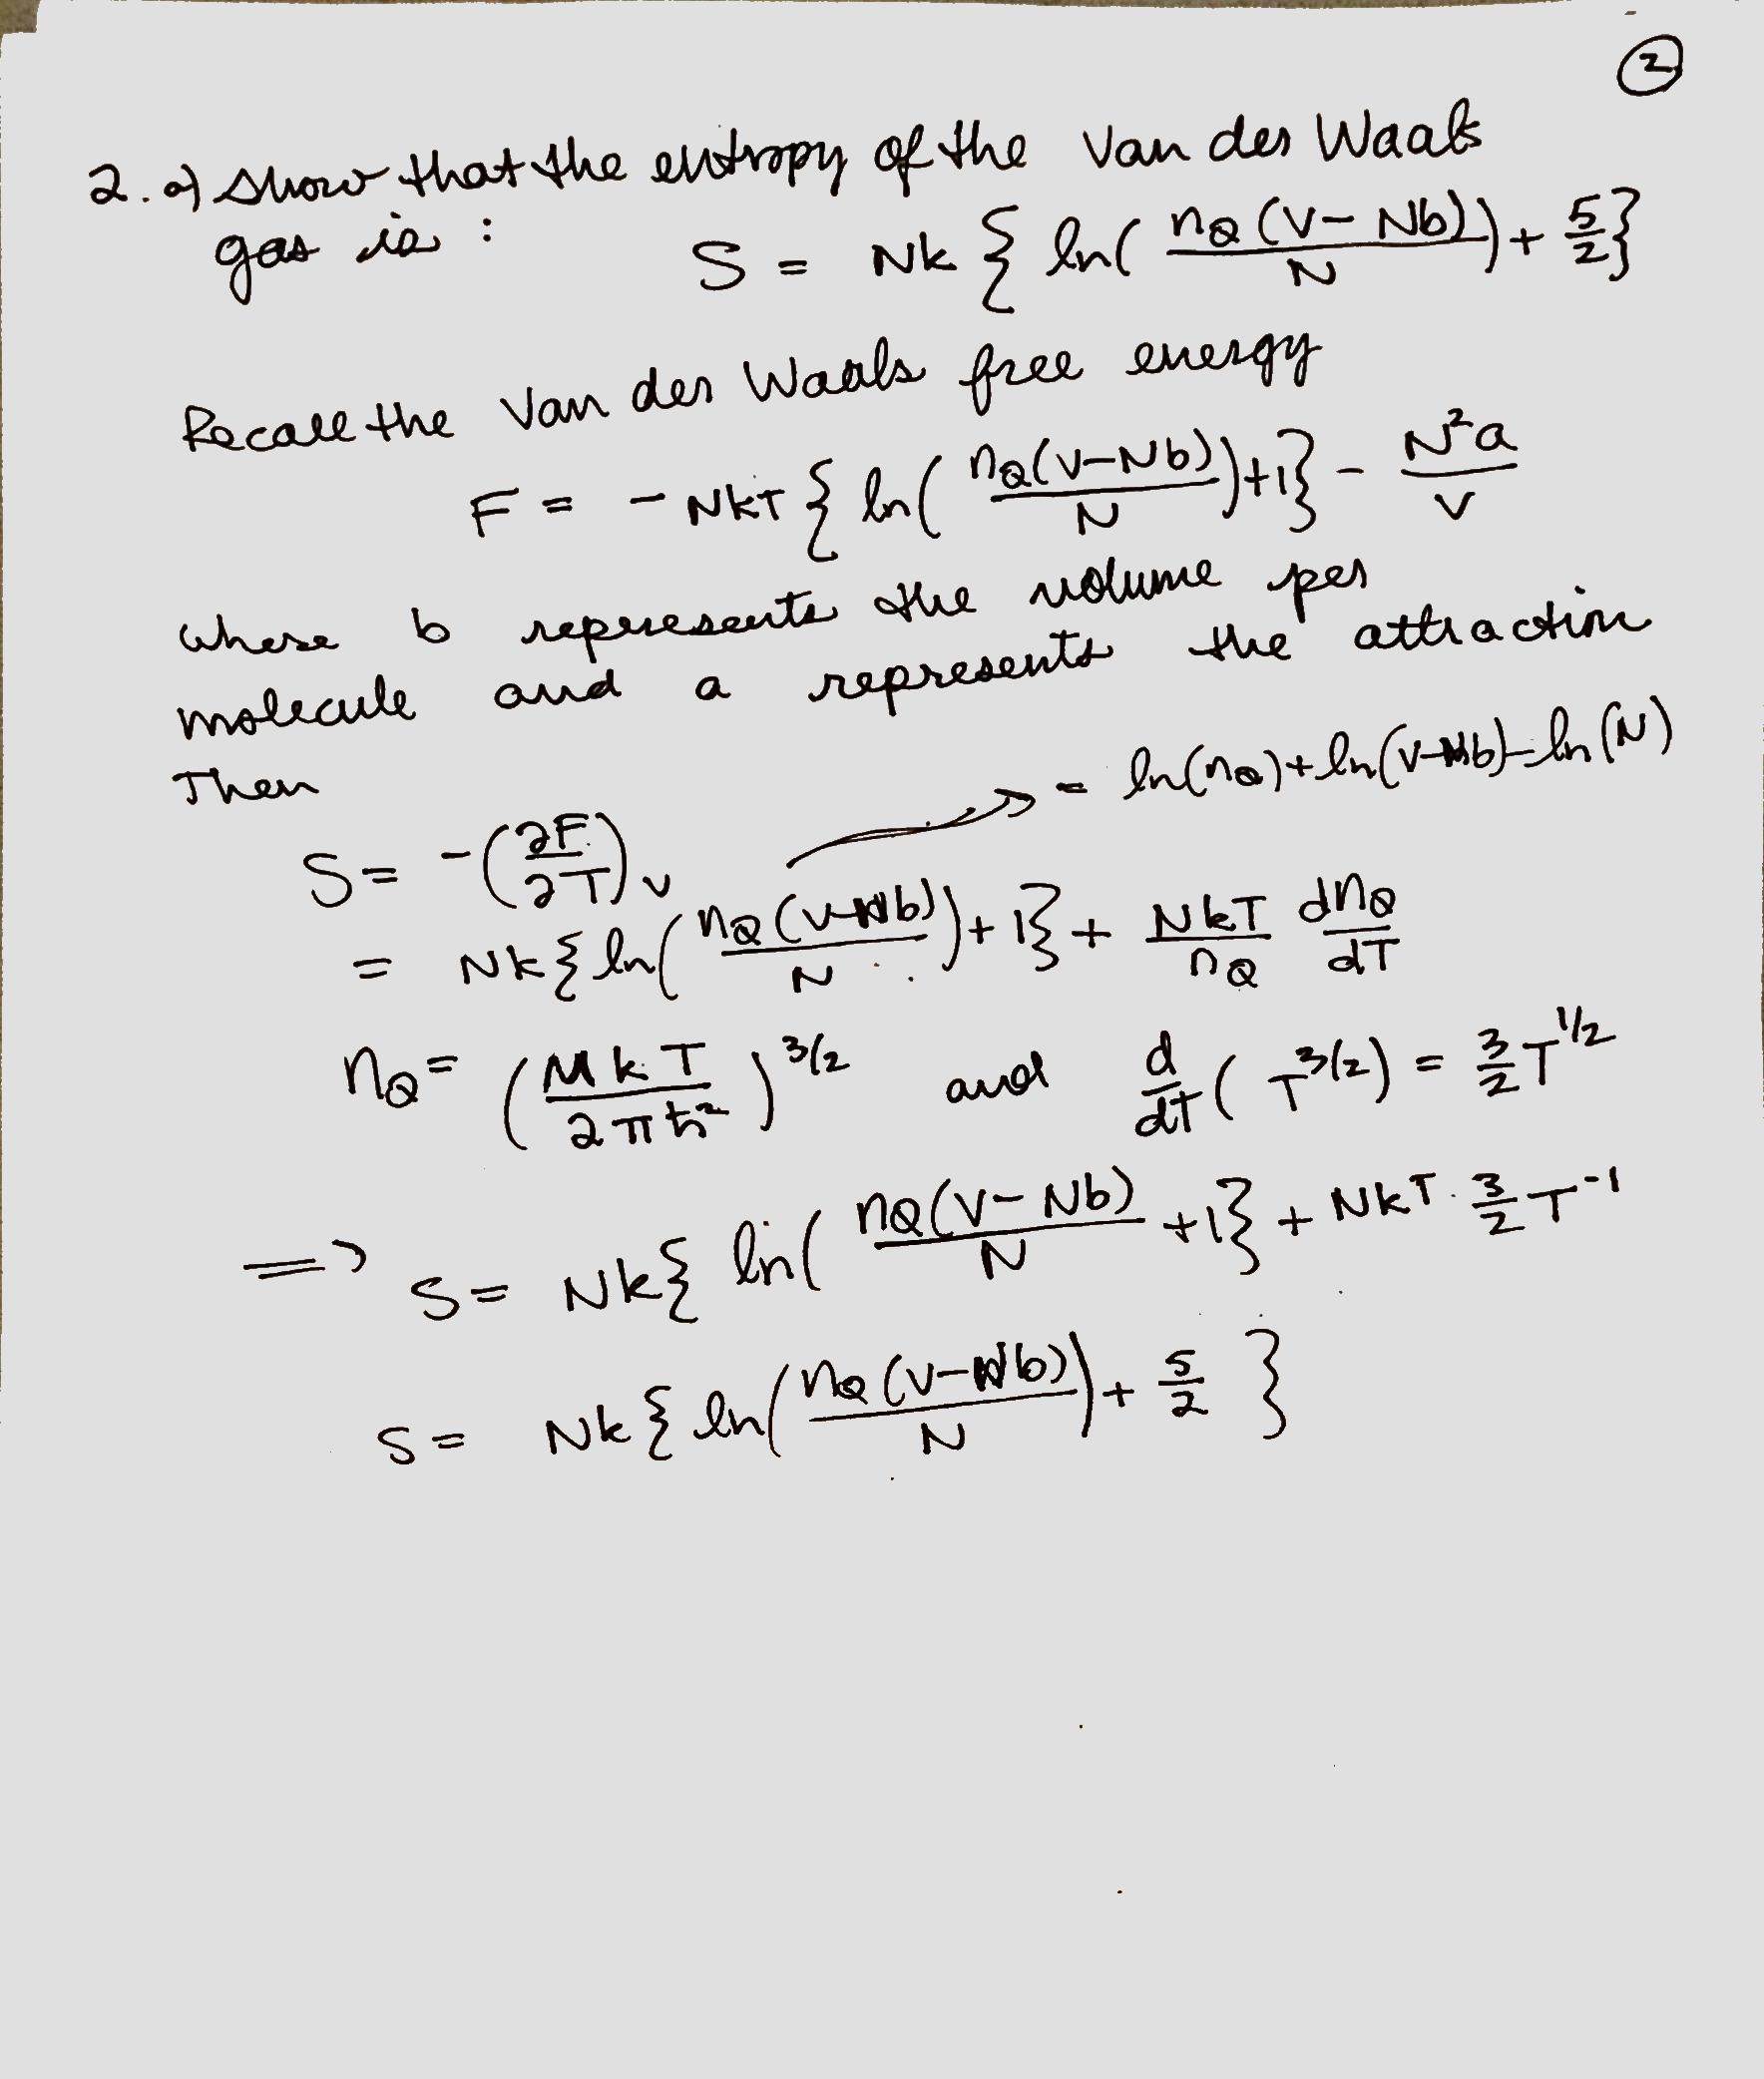 ②
2. a) Show that the entropy of the Van der Waals
gas is : S = Nk { ln( n_Q (V - Nb) / N ) + 5/2 }
Recall the Van der Waals free energy
F = - NkT { ln( n_Q(V-Nb) / N ) + 1 } - N²a / V
where b represents the volume per
molecule and a represents the attraction
Then = ln(n_Q) + ln(V-Nb) - ln(N)
S = - (∂F/∂T)_V
= Nk { ln( n_Q (V-Nb) / N ) + 1 } + NkT / n_Q dn_Q / dT
n_Q = ( MkT / 2πħ² )^3/2 and d/dT ( T^3/2 ) = 3/2 T^1/2
=> S = Nk { ln( n_Q(V - Nb) / N + 1 } + NkT · 3/2 T^-1
S = Nk { ln( n_Q (V-Nb) / N ) + 5/2 }